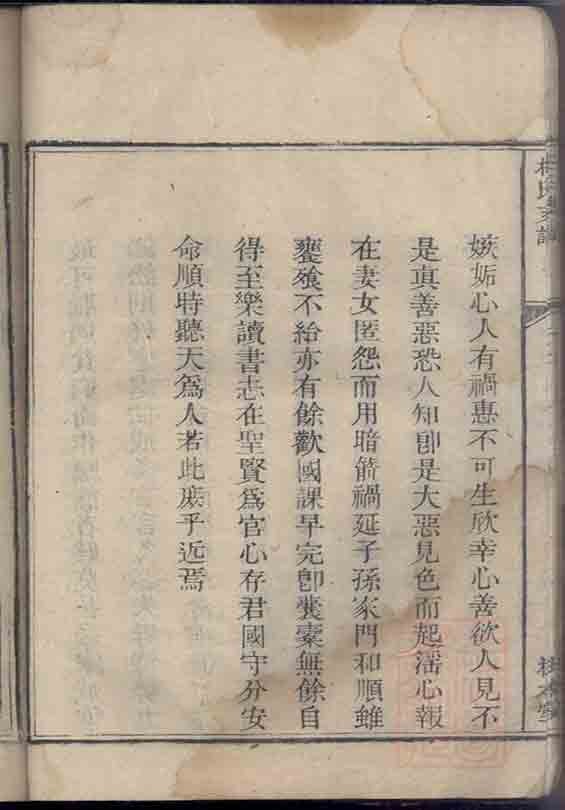 嫉妬心人有禍惠不可生欣幸心善欲人見不
是真善惡恐人知卽是大惡見色而起滛心報
在妻女匿怨而用暗箭禍延子孫家門和順雖
饔飧不給亦有餘歡國課早完卽囊橐無餘自
得至樂讀書志在聖賢爲官心存君國守分安
命順時聽天爲人若此庶乎近焉
氏支譜